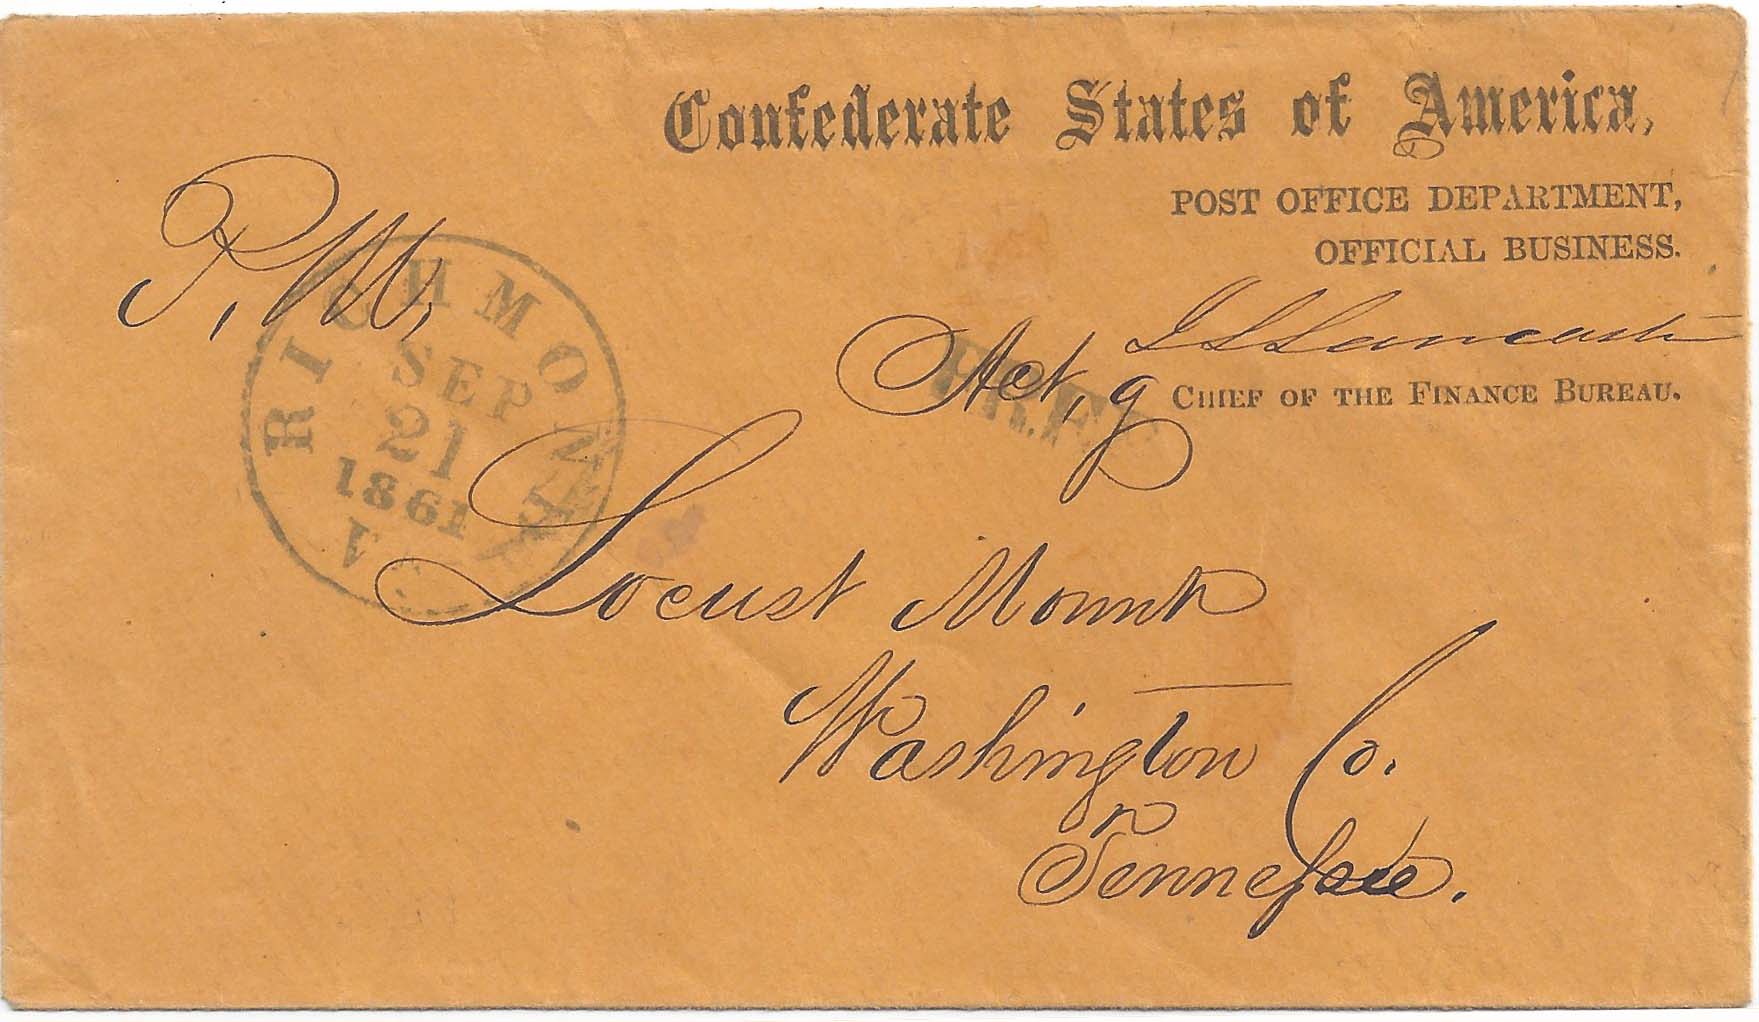 Confederate States of America,
POST OFFICE DEPARTMENT,
OFFICIAL BUSINESS.
P. M.
Act'g
CHIEF OF THE FINANCE BUREAU.
RICHMOND
SEP
21
1861
Locust Mount
Washington Co.
Tennessee.